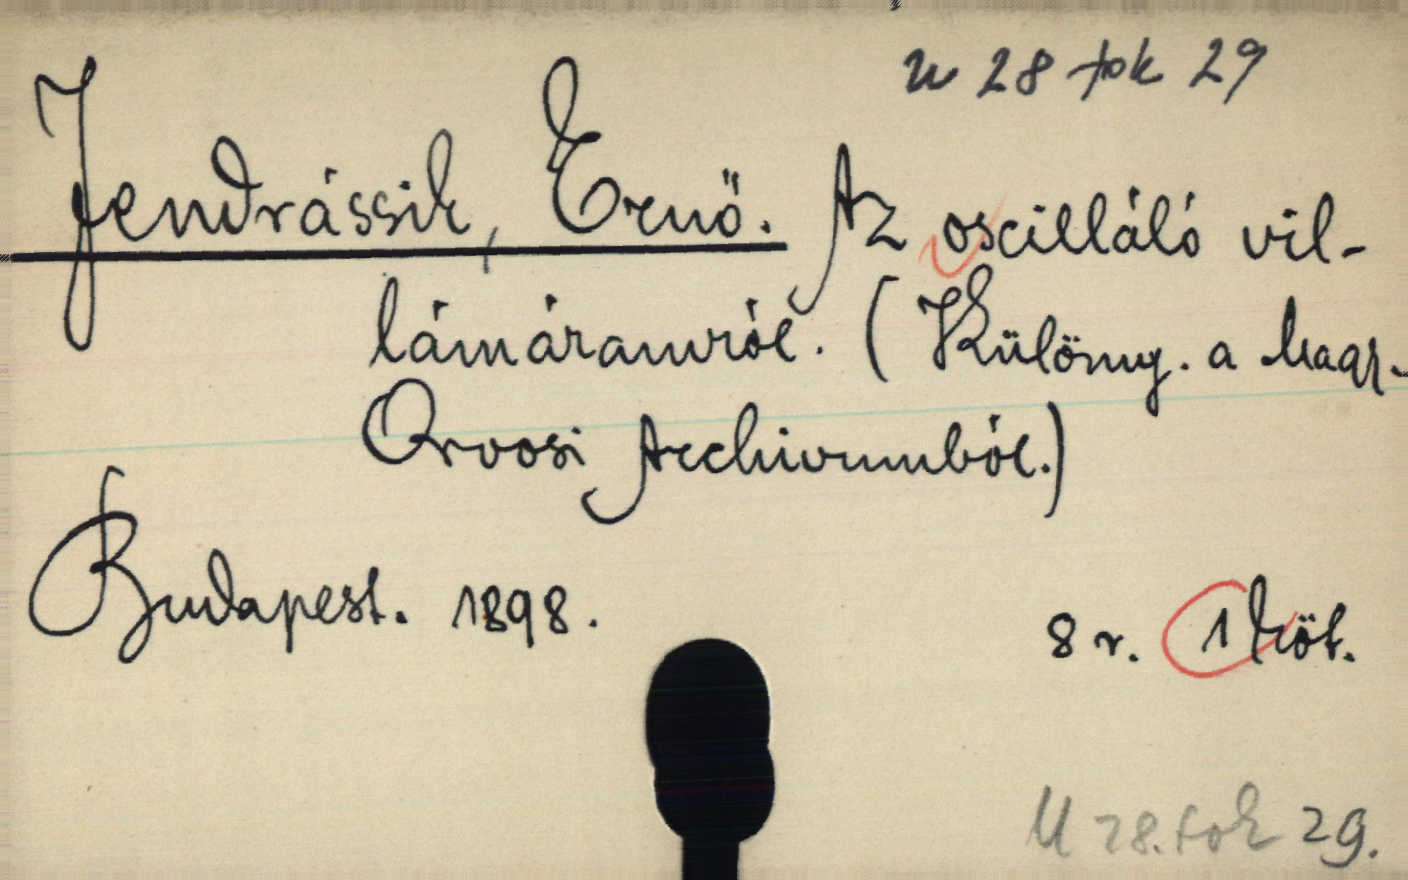 U 28 tok 29
Jendrássik, Ernő. Az oscilláló vil-
lámáramról. (Különny. a Magy.
Orvosi Archivumból.)
Budapest. 1898.
8 r. 1 köt.
U 28. tok 29.